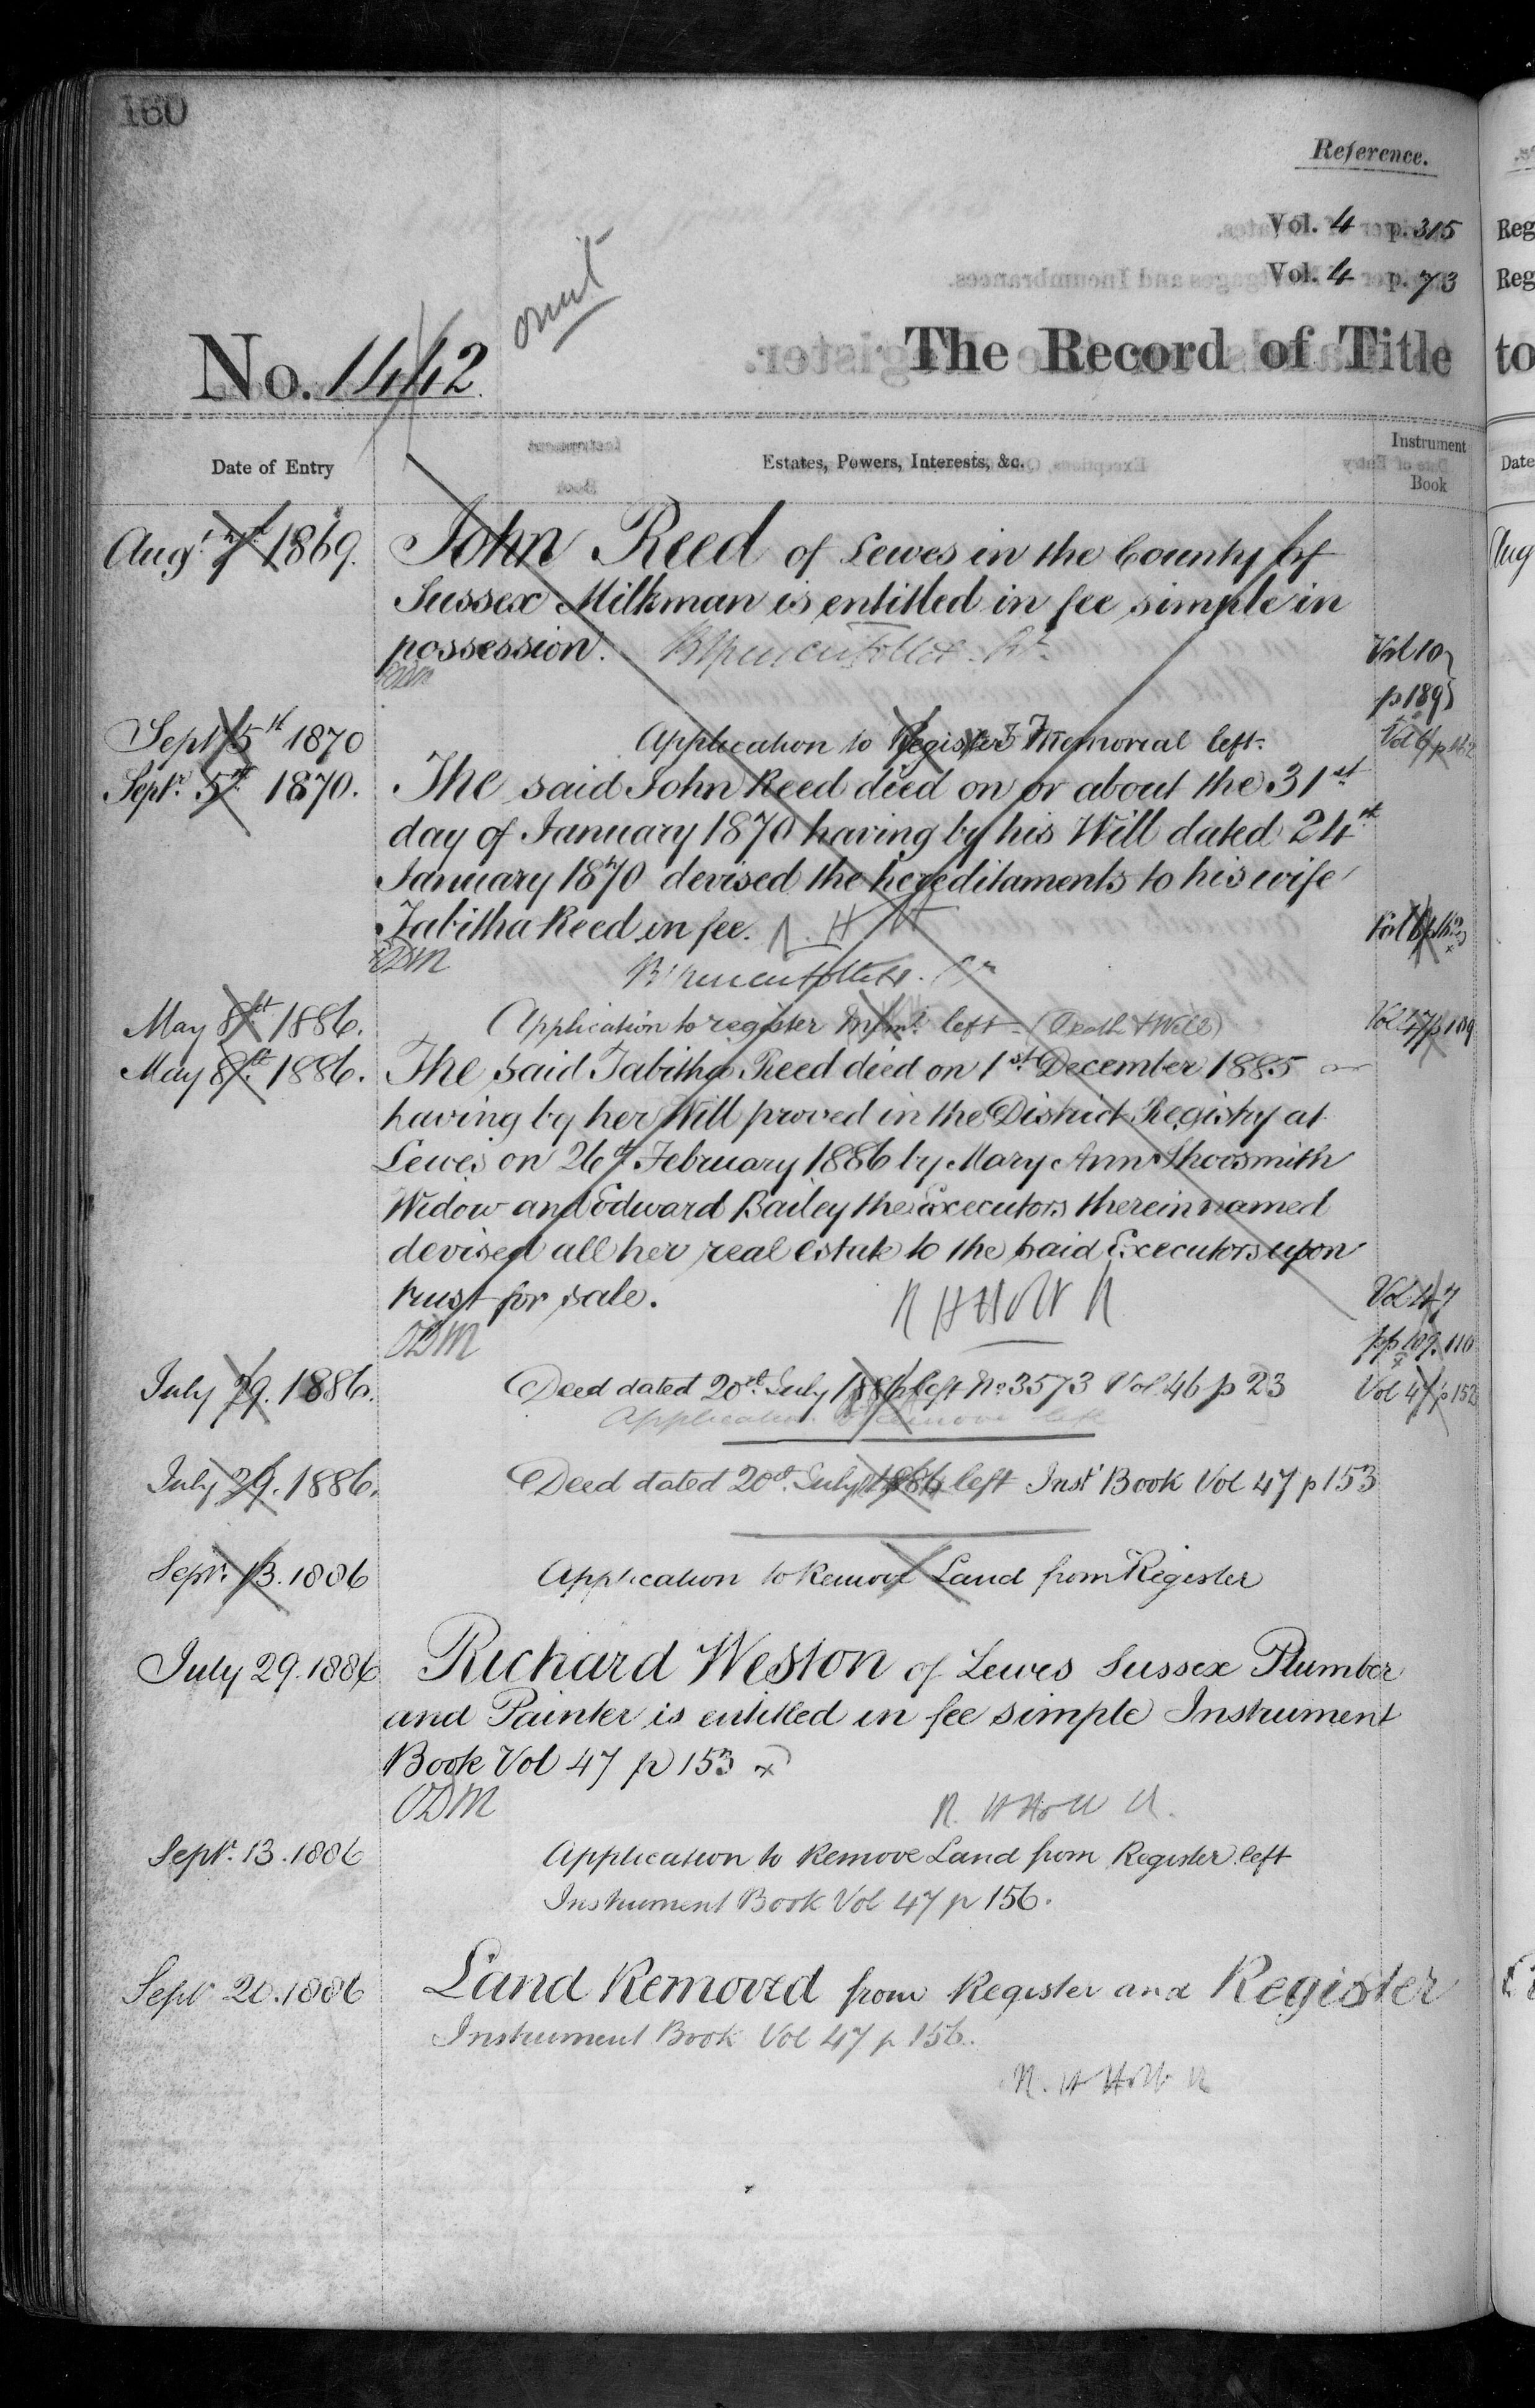 160
Reference.
Vol. 4 p. 315
Vol. 4 p. 73
omit
No. 1442
The Record of Title
Date of Entry
Estates, Powers, Interests, &c.
Instrument
Book
Augt. 7th 1869.
John Reed of Lewes in the County of
Sussex Milkman is entitled in fee simple in
possession.
Vol 10
p 189
Sept 5th 1870
Application to Register Memorial left.
Septr. 5th 1870.
The said John Reed died on or about the 31st
day of January 1870 having by his Will dated 24th
January 1870 devised the hereditaments to his wife
Tabitha Reed in fee.
ODM
May 8th 1886.
Application to register left (Death & Will)
Vol 47 p 109
May 8th 1886.
The said Tabitha Reed died on 1st December 1885
having by her Will proved in the District Registry at
Lewes on 26th February 1886 by Mary Ann Shoosmith
Widow and Edward Bailey the Executors therein named
devised all her real estate to the said Executors upon
trust for sale.
Vol 47
pp 109. 110
ODM
July 29. 1886.
Deed dated 20th July 1886 left No 3573 Vol. 46 p 23
Vol 47 p 152
Application to remove left
July 29. 1886.
Deed dated 20th July 1886 left Inst Book Vol 47 p 153
Septr. 13. 1886
Application to Remove Land from Register
July 29. 1886
Richard Weston of Lewes Sussex Plumber
and Painter is entitled in fee simple Instrument
Book Vol 47 p 153
ODM
Septr. 13. 1886
Application to Remove Land from Register left
Instrument Book Vol 47 p 156.
Septr 20. 1886
Land Removed from Register and Register
Instrument Book Vol 47 p 156.
Reg
Reg
to
Date
Aug